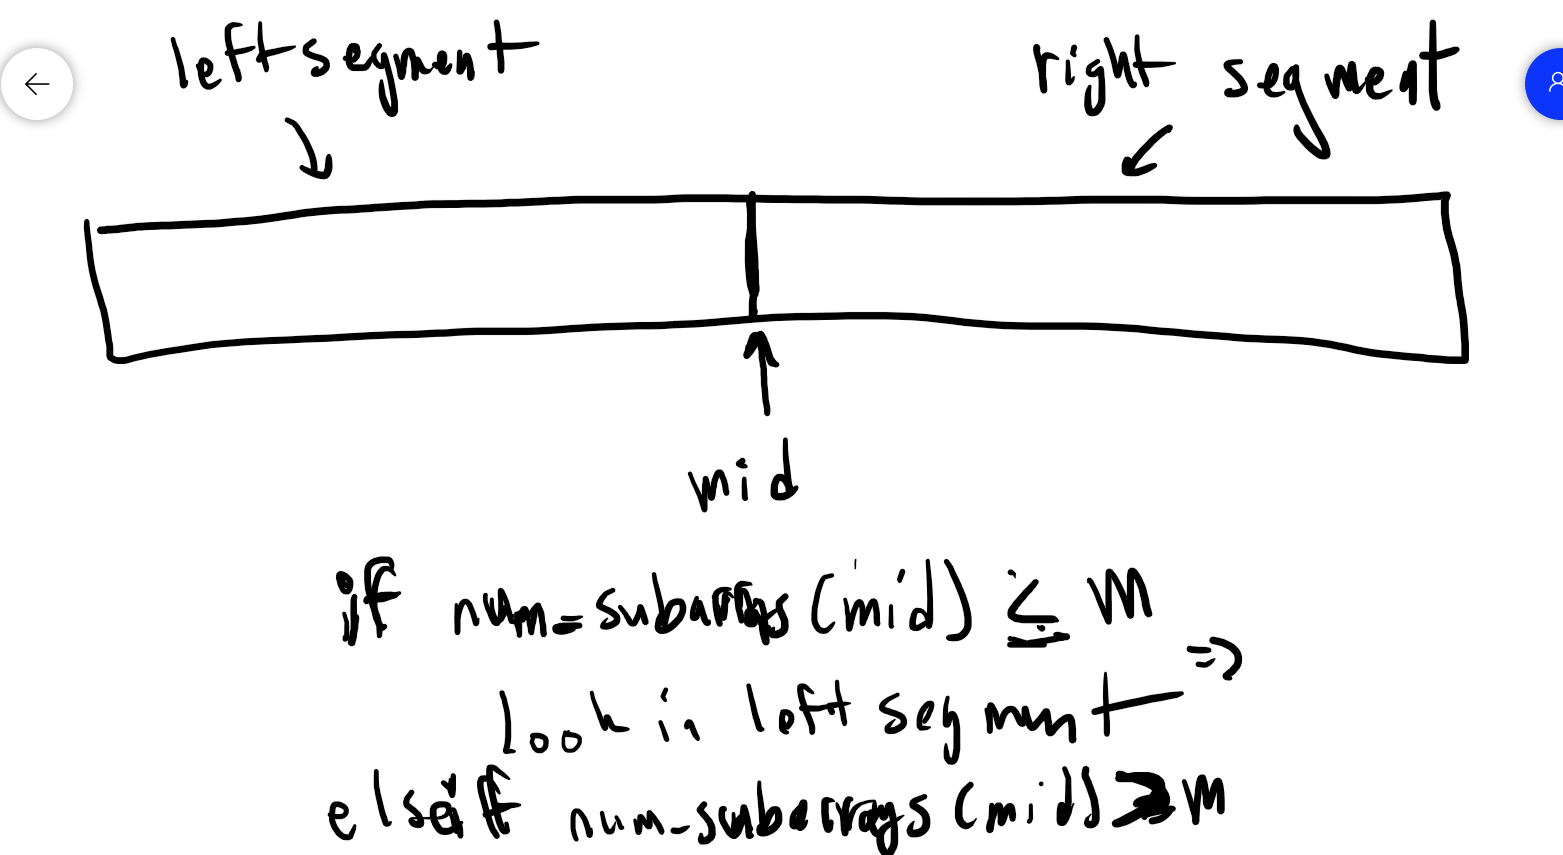 left segment
right segment
mid
if num_subarrays (mid) ≤ m
look in left segment =>
else if num_subarrays (mid) > m